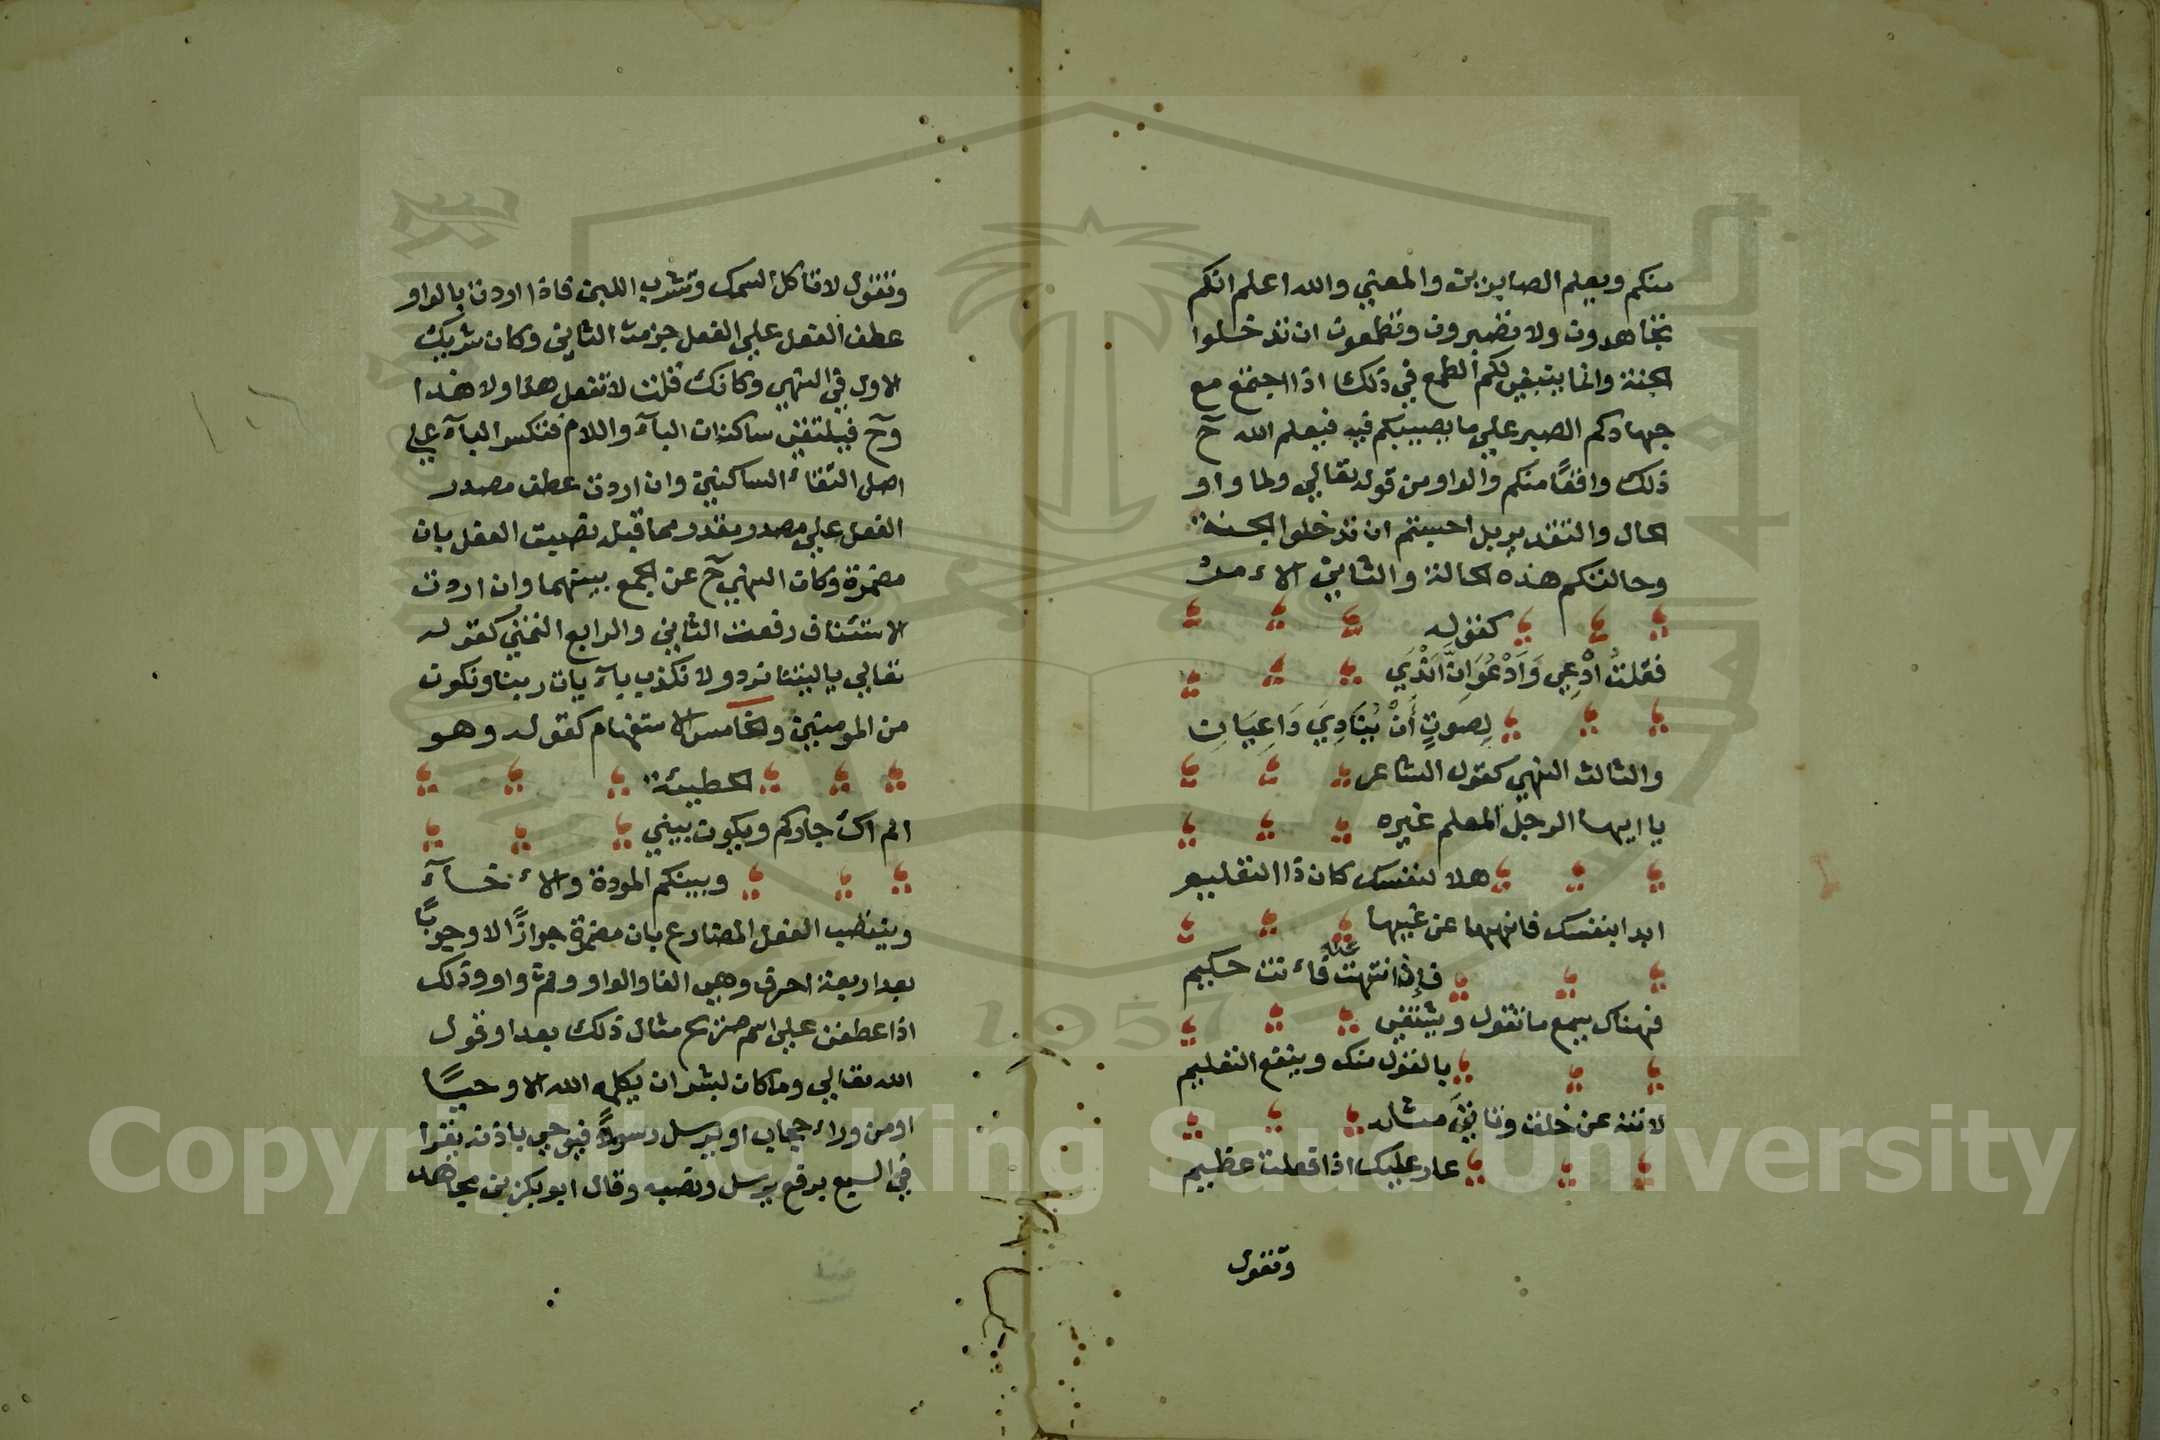 منكم ويعلم الصابرين والمعني والله اعلم انكم
تجاهدون ولا تصبرون وتطمعون ان تدخلوا
الجنة وانما ينبغي لكم الطمع في ذلك اذا اجتمع مع
جهادكم الصبر علي ما يصيبكم فيه فيعلم الله ح
ذلك واقعًا منكم والواو من قوله تعالي ولما واو
الحال والتقدير بل احسبتم ان تدخلوا الجنة
وحالتكم هذه الحالة والثاني الامر
كقوله
فقلتُ ادْعِي وَاَدْعُوَ اِنَّ اَنْدَي
لِصوتٍ أَنْ يُنَادِيَ دَاعِيَانِ
والثالث النهي كقول الشاعر
يا ايها الرجل المعلم غيره
هلا لنفسك كان ذا التعليم
ابدا بنفسك فانهها عن غيها
فإذا انتهت عنه فانت حكيم
فهناك يسمع ما تقول ويشتفي
بالقول منك وينفع التعليم
لا تنه عن خلق وتاتيَ مثله
عار عليك اذا فعلت عظيم
وتقول
وتقول لا تاكل السمك وتشرب اللبن فاذا اردت بالواو
عطف الفعل علي الفعل جزمت الثاني وكان شريك
الاول في النهي وكانك قلت لا تفعل هذا ولا هذا
وح فيلتقي ساكنان الباء واللام فتكسر الباء علي
اصل التقاء الساكنين وان اردت عطف مصدر
الفعل علي مصدر مقدر مما قبله نصبت الفعل بان
مضمرة وكان النهي ح عن الجمع بينهما وان اردت
الاستئناف رفعت الثاني والرابع التمني كقوله
تعالي يا ليتنا نرد ولا نكذب بآيات ربنا ونكون
من المومنين والخامس الاستفهام كقوله وهو
الحطيئة
الم اك جاركم ويكون بيني
وبينكم المودة والاخاء
وينصب الفعل المضارع بان مضمرة جوازًا لا وجوبًا
بعد اربعة احرف وهي الفا والواو وثم واو وذلك
اذا عطفن علي اسم صريح مثال ذلك بعد او قول
الله تعالي وما كان لبشر ان يكلمه الله الا وحيًا
او من وراء حجاب او يرسل رسولًا فيوحي باذنه يقرا
في السبع برفع يرسل ونصبه وقال ابو بكر بن مجاهد
Copyright © King Saud University
1957